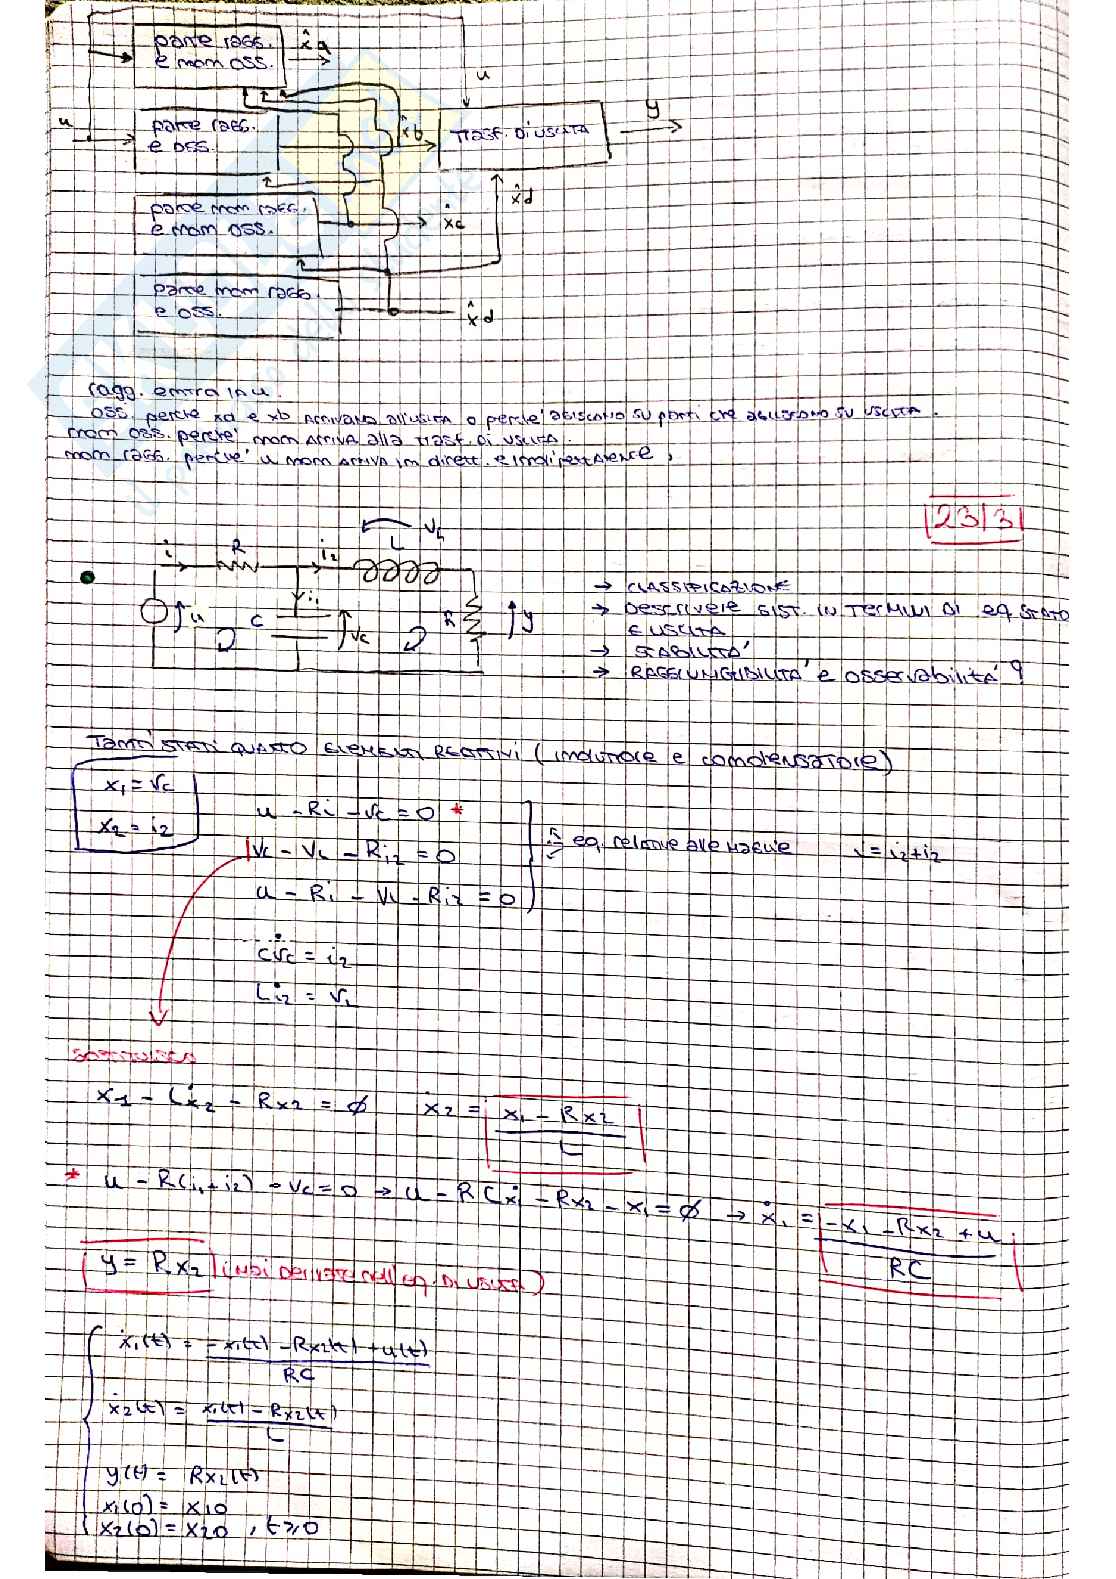 parte ragg.
e non oss.
x̂a
u
u
parte ragg.
e oss.
x̂b
TRASF. DI USCITA
y
parte non ragg.
e non oss.
x̂c
x̂d
parte non ragg.
e oss.
x̂d
ragg. entra in u.
oss. perché xd e xb ARRIVANO all'USCITA o perché agiscono su parti che agiscono su uscita.
non oss. perché non ARRIVA alla TRASF. DI USCITA.
non ragg. perché u non ARRIVA in dirett. e
23/3
i R i2 L VL
u C i1 vc R y
→ CLASSIFICAZIONE
→ DESCRIVERE SIST. IN TERMINI DI eq STATO
E USCITA
→ STABILITA'
→ RAGGIUNGIBILITA' e osservabilità?
TANTI STATI QUANTO ELEMENTI REATTIVI (induttore e condensatore)
x1 = vc
x2 = i2
u - Ri - vc = 0 *
vc - vL - Ri2 = 0
u - Ri - vL - Ri2 = 0
eq. relative alle MAGLIE
i = i2 + i2
Cv̇c = i2
Li̇2 = vL
x1 - Lẋ2 - Rx2 = ∅ ẋ2 = x1 - Rx2 / L
* u - R(i1 + i2) - vc = 0 → u - RCẋ1 - Rx2 - x1 = ∅ → ẋ1 = -x1 - Rx2 + u / RC
y = Rx2 (NO DERIVATE nell'eq. DI USCITA)
ẋ1(t) = -x1(t) - Rx2(t) + u(t) / RC
ẋ2(t) = x1(t) - Rx2(t) / L
y(t) = Rx2(t)
x1(0) = x10
x2(0) = x20 , t ≥ 0